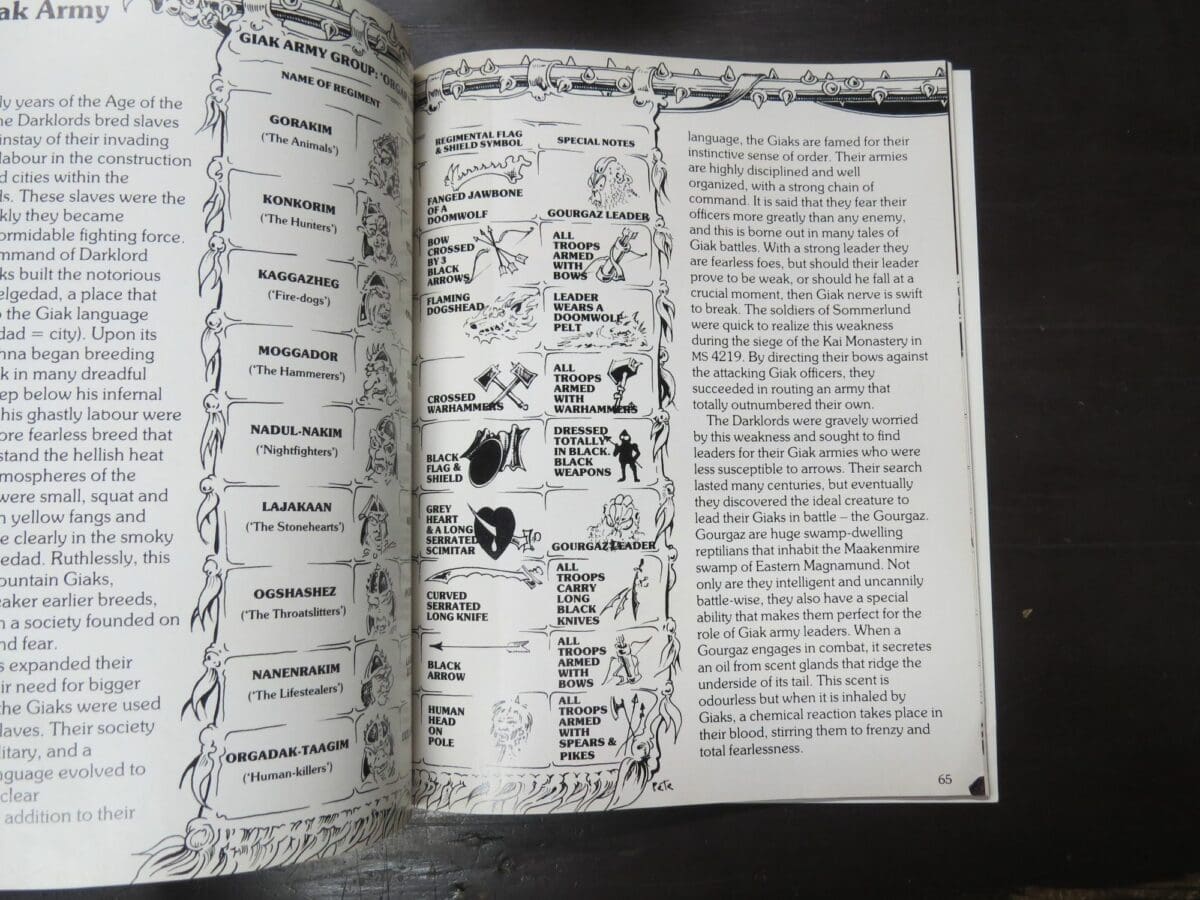 ak Army
ly years of the Age of the
ne Darklords bred slaves
instay of their invading
labour in the construction
d cities within the
ds. These slaves were the
kly they became
ormidable fighting force.
mmand of Darklord
ks built the notorious
elgedad, a place that
o the Giak language
dad = city). Upon its
nna began breeding
k in many dreadful
ep below his infernal
this ghastly labour were
ore fearless breed that
stand the hellish heat
tmospheres of the
were small, squat and
n yellow fangs and
e clearly in the smoky
edad. Ruthlessly, this
ountain Giaks,
eaker earlier breeds,
n a society founded on
nd fear.
s expanded their
ir need for bigger
the Giaks were used
laves. Their society
litary, and a
nguage evolved to
clear
addition to their
GIAK ARMY GROUP: 'ORGA
NAME OF REGIMENT
GORAKIM
('The Animals')
KONKORIM
('The Hunters')
KAGGAZHEG
('Fire-dogs')
MOGGADOR
('The Hammerers')
NADUL-NAKIM
('Nightfighters')
LAJAKAAN
('The Stonehearts')
OGSHASHEZ
('The Throatslitters')
NANENRAKIM
('The Lifestealers')
ORGADAK-TAAGIM
('Human-killers')
REGIMENTAL FLAG
& SHIELD SYMBOL
SPECIAL NOTES
FANGED JAWBONE
OF A
DOOMWOLF
GOURGAZ LEADER
BOW
CROSSED
BY 3
BLACK
ARROWS
ALL
TROOPS
ARMED
WITH
BOWS
FLAMING
DOGSHEAD
LEADER
WEARS A
DOOMWOLF
PELT
CROSSED
WARHAMMERS
ALL
TROOPS
ARMED
WITH
WARHAMMERS
BLACK
FLAG &
SHIELD
DRESSED
TOTALLY
IN BLACK.
BLACK
WEAPONS
GREY
HEART
& A LONG
SERRATED
SCIMITAR
GOURGAZ LEADER
CURVED
SERRATED
LONG KNIFE
ALL
TROOPS
CARRY
LONG
BLACK
KNIVES
BLACK
ARROW
ALL
TROOPS
ARMED
WITH
BOWS
HUMAN
HEAD
ON
POLE
ALL
TROOPS
ARMED
WITH
SPEARS &
PIKES
PETE
language, the Giaks are famed for their
instinctive sense of order. Their armies
are highly disciplined and well
organized, with a strong chain of
command. It is said that they fear their
officers more greatly than any enemy,
and this is borne out in many tales of
Giak battles. With a strong leader they
are fearless foes, but should their leader
prove to be weak, or should he fall at a
crucial moment, then Giak nerve is swift
to break. The soldiers of Sommerlund
were quick to realize this weakness
during the siege of the Kai Monastery in
MS 4219. By directing their bows against
the attacking Giak officers, they
succeeded in routing an army that
totally outnumbered their own.
The Darklords were gravely worried
by this weakness and sought to find
leaders for their Giak armies who were
less susceptible to arrows. Their search
lasted many centuries, but eventually
they discovered the ideal creature to
lead their Giaks in battle – the Gourgaz.
Gourgaz are huge swamp-dwelling
reptilians that inhabit the Maakenmire
swamp of Eastern Magnamund. Not
only are they intelligent and uncannily
battle-wise, they also have a special
ability that makes them perfect for the
role of Giak army leaders. When a
Gourgaz engages in combat, it secretes
an oil from scent glands that ridge the
underside of its tail. This scent is
odourless but when it is inhaled by
Giaks, a chemical reaction takes place in
their blood, stirring them to frenzy and
total fearlessness.
65